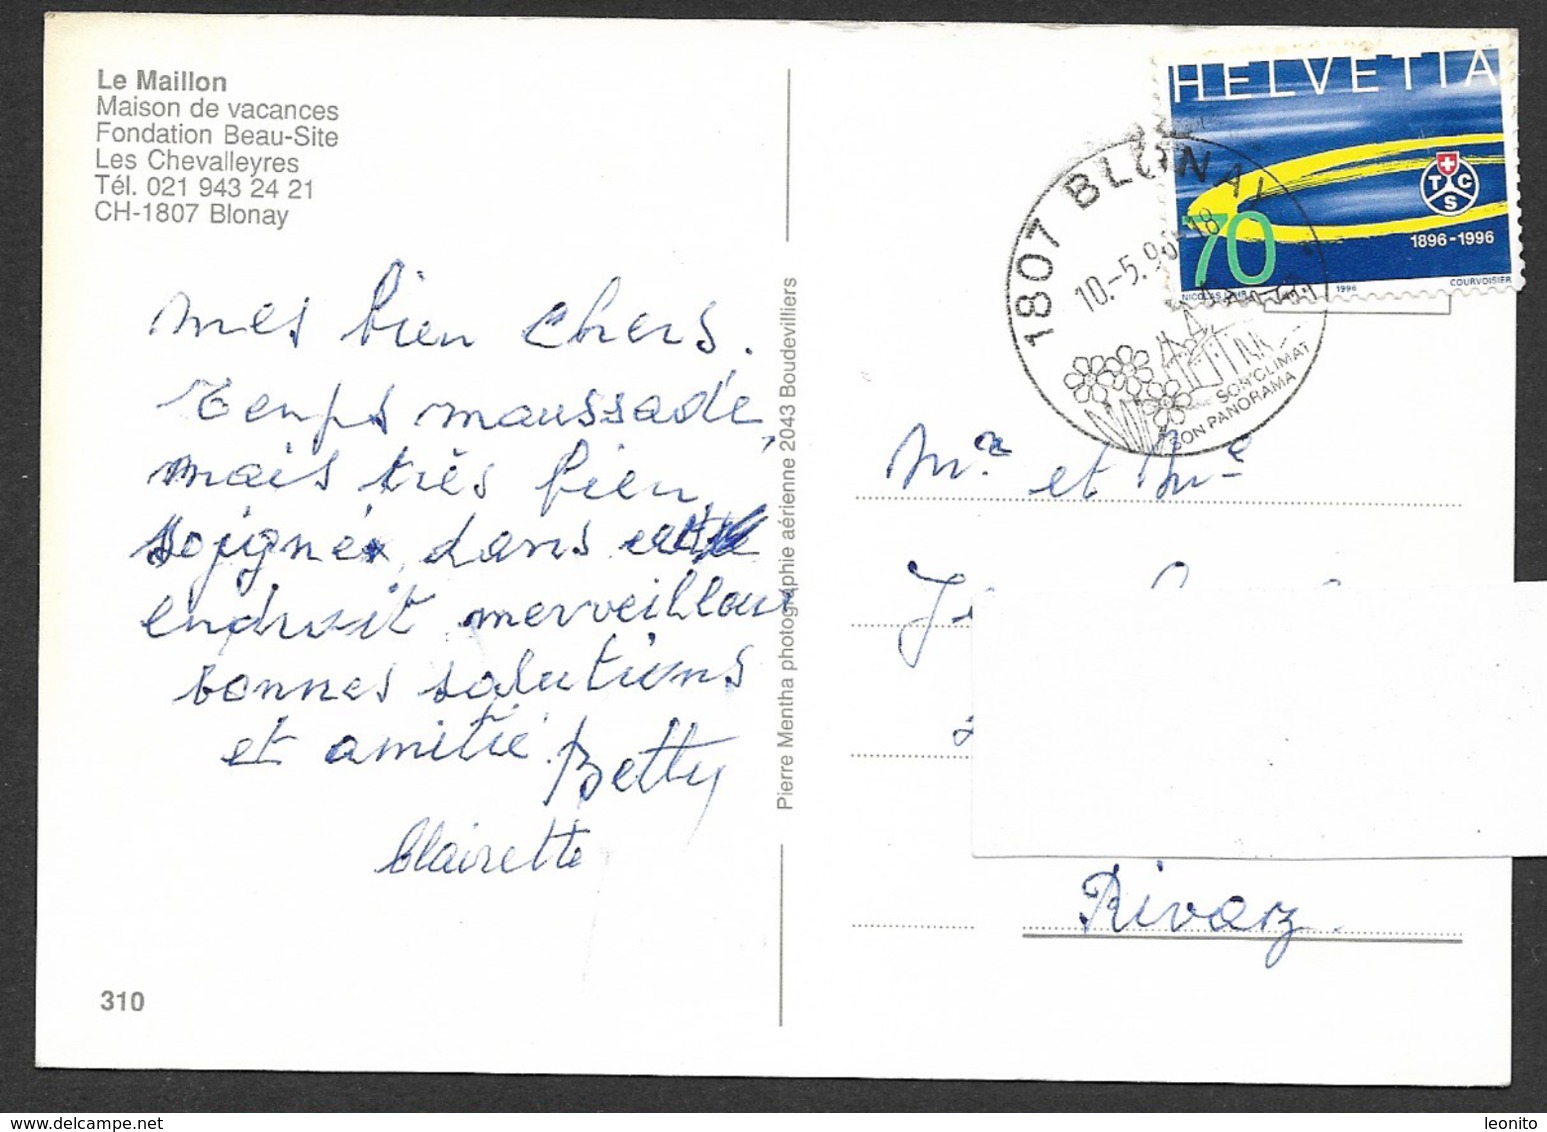 Le Maillon
Maison de vacances
Fondation Beau-Site
Les Chevalleyres
Tél. 021 943 24 21
CH-1807 Blonay
mes bien chers.
Temps maussade,
mais très bien
soignés dans cette
endroit merveilleux
bonnes salutions
et amitié. Betty
Clairette
310
Pierre Mentha photographie aérienne 2043 Boudevilliers
HELVETIA
TCS
70
1896-1996
1996
COURVOISIER
1807 BLONAY
10.-5.96-18
SON CLIMAT
SON PANORAMA
Mr et Me
Rivaz
leonito